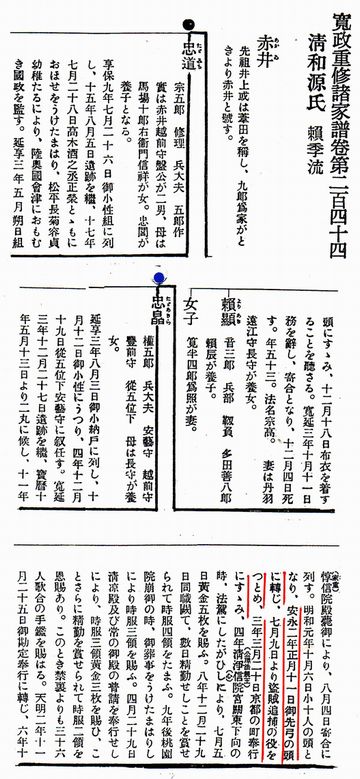 寛政重修諸家譜卷第二百四十四
清和源氏 頼季流
赤井
あかゐ
先祖井上或は蘆田を稱し、九郎爲家がと
きより赤井と號す。
忠道
たゞみち
宗五郎 修理 兵大夫 五郎作
實は赤井越前守盤公が二男、母は
馬場十郎右衞門信祥が女。忠圀が
養子となる。
享保九年七月二十六日御小性組に列
し、十五年八月五日遺跡を繼、十七年
七月二十八日高木酒之丞正榮とゝもに
おほせをうけたまはり、松平長菊容貞
幼稚たるにより、陸奥國會津におもむ
き國政を監す。延享三年五月朔日組
頭にすゝみ、十二月十八日布衣を着す
ることを聽さる。寛延三年十月十一日
務を辭し、寄合となり、十二月四日死
す。年五十三。法名宗高。 妻は丹羽
遠江守長守が養女。
頼顯
よりあき
音三郎 兵部 靱負 多田善八郎
頼辰が養子。
女子
筧半四郎爲照が妻。
忠晶
たゞあきら
權五郎 兵大夫 安藝守 越前守
豐前守 從五位下 母は長守が養
女。
延享三年八月三日御小納戸に列し、十
月十二日御小性にうつり、四年十二月
十九日從五位下安藝守に叙任す。寛延
三年十二月二十七日遺跡を繼、寶曆十
年五月十三日より二丸に候し、十一年
惇信院殿薨御により、八月四日寄合に
(家重)
列す。明和元年十月六日小十人の頭と
なり、安永二年正月十一日御先弓の頭
に轉じ、七月九日より盜賊追捕の役を
つとめ、三年三月二十日京都の町奉行
にすゝみ、四年清淨信院宮關東下向の
時、法駕にしたがひしにより、七月五
日黄金五枚を賜ふ。八年十二月二十九
日同職闕て、數日精勤せしことを賞せ
られて時服四領をたまふ。九年後桃園
院崩御の時、御葬事をうけたまはりし
により時服三領を賜ふ。四月二十九日
清凉殿及び常の御殿の普請を奉行せし
により、時服三領黄金三枚を賜ひ、こ
とさらに精勤を賞せられて時服二領を
恩賜あり。このとき禁裏よりも三十六
人歌合の手鑑を賜はる。天明二年十一
月二十五日御勘定奉行に轉じ、六年十